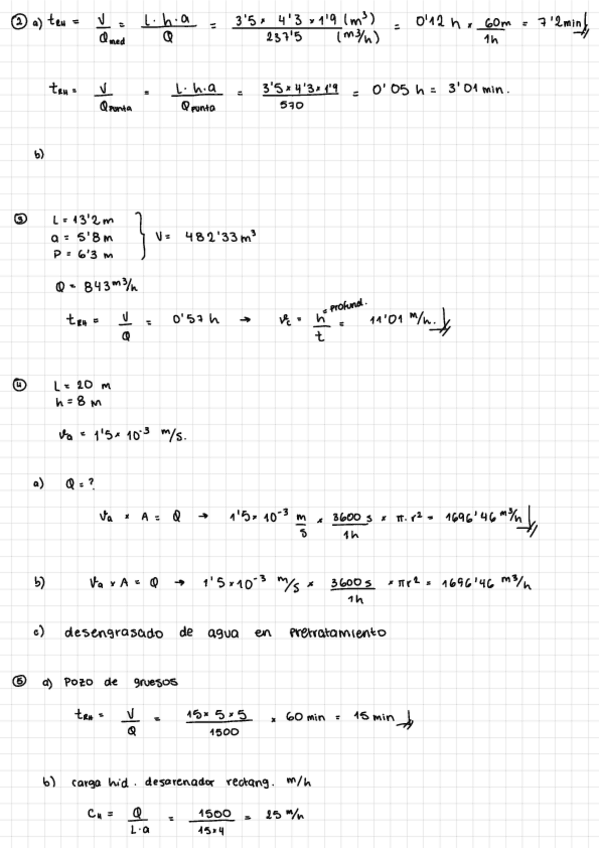 ② a) tRH = V / Qmed = L · h · a / Q = 3'5 × 4'3 × 1'9 (m³) / 237'5 (m³/h) = 0'12 h × 60m / 1h = 7'2min
tRH = V / Qpunta = L · h · a / Qpunta = 3'5 × 4'3 × 1'9 / 570 = 0'05 h = 3'01 min.
b)
③ L = 13'2 m
a = 5'8 m } V = 482'33 m³
P = 6'3 m
Q = 843 m³/h
tRH = V / Q = 0'57 h → vc = h = profund. / t = 11'01 m/h.
④ L = 20 m
h = 8 m
va = 1'5 × 10⁻³ m/s.
a) Q = ?
va × A = Q → 1'5 × 10⁻³ m/s × 3600 s / 1h × π · r² = 1696'46 m³/h
b) va × A = Q → 1'5 × 10⁻³ m/s × 3600 s / 1h × πr² = 1696'46 m³/h
c) desengrasado de agua en pretratamiento
⑤ a) Pozo de gruesos
tRH = V / Q = 15 × 5 × 5 / 1500 × 60 min = 15 min
b) carga hid. desarenador rectang. m/h
CH = Q / L·a = 1500 / 15×4 = 25 m/h